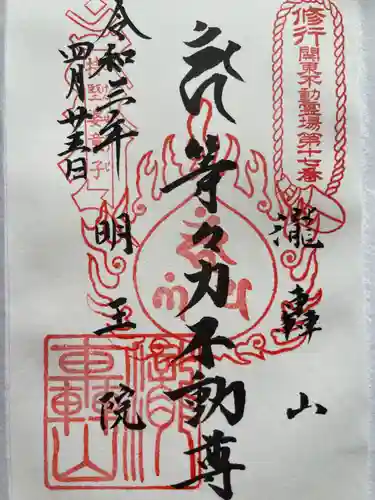 修行
關東不動霊場第十七番
瀧轟山
等々力不動尊
明王院
令和三年
四月廿五日